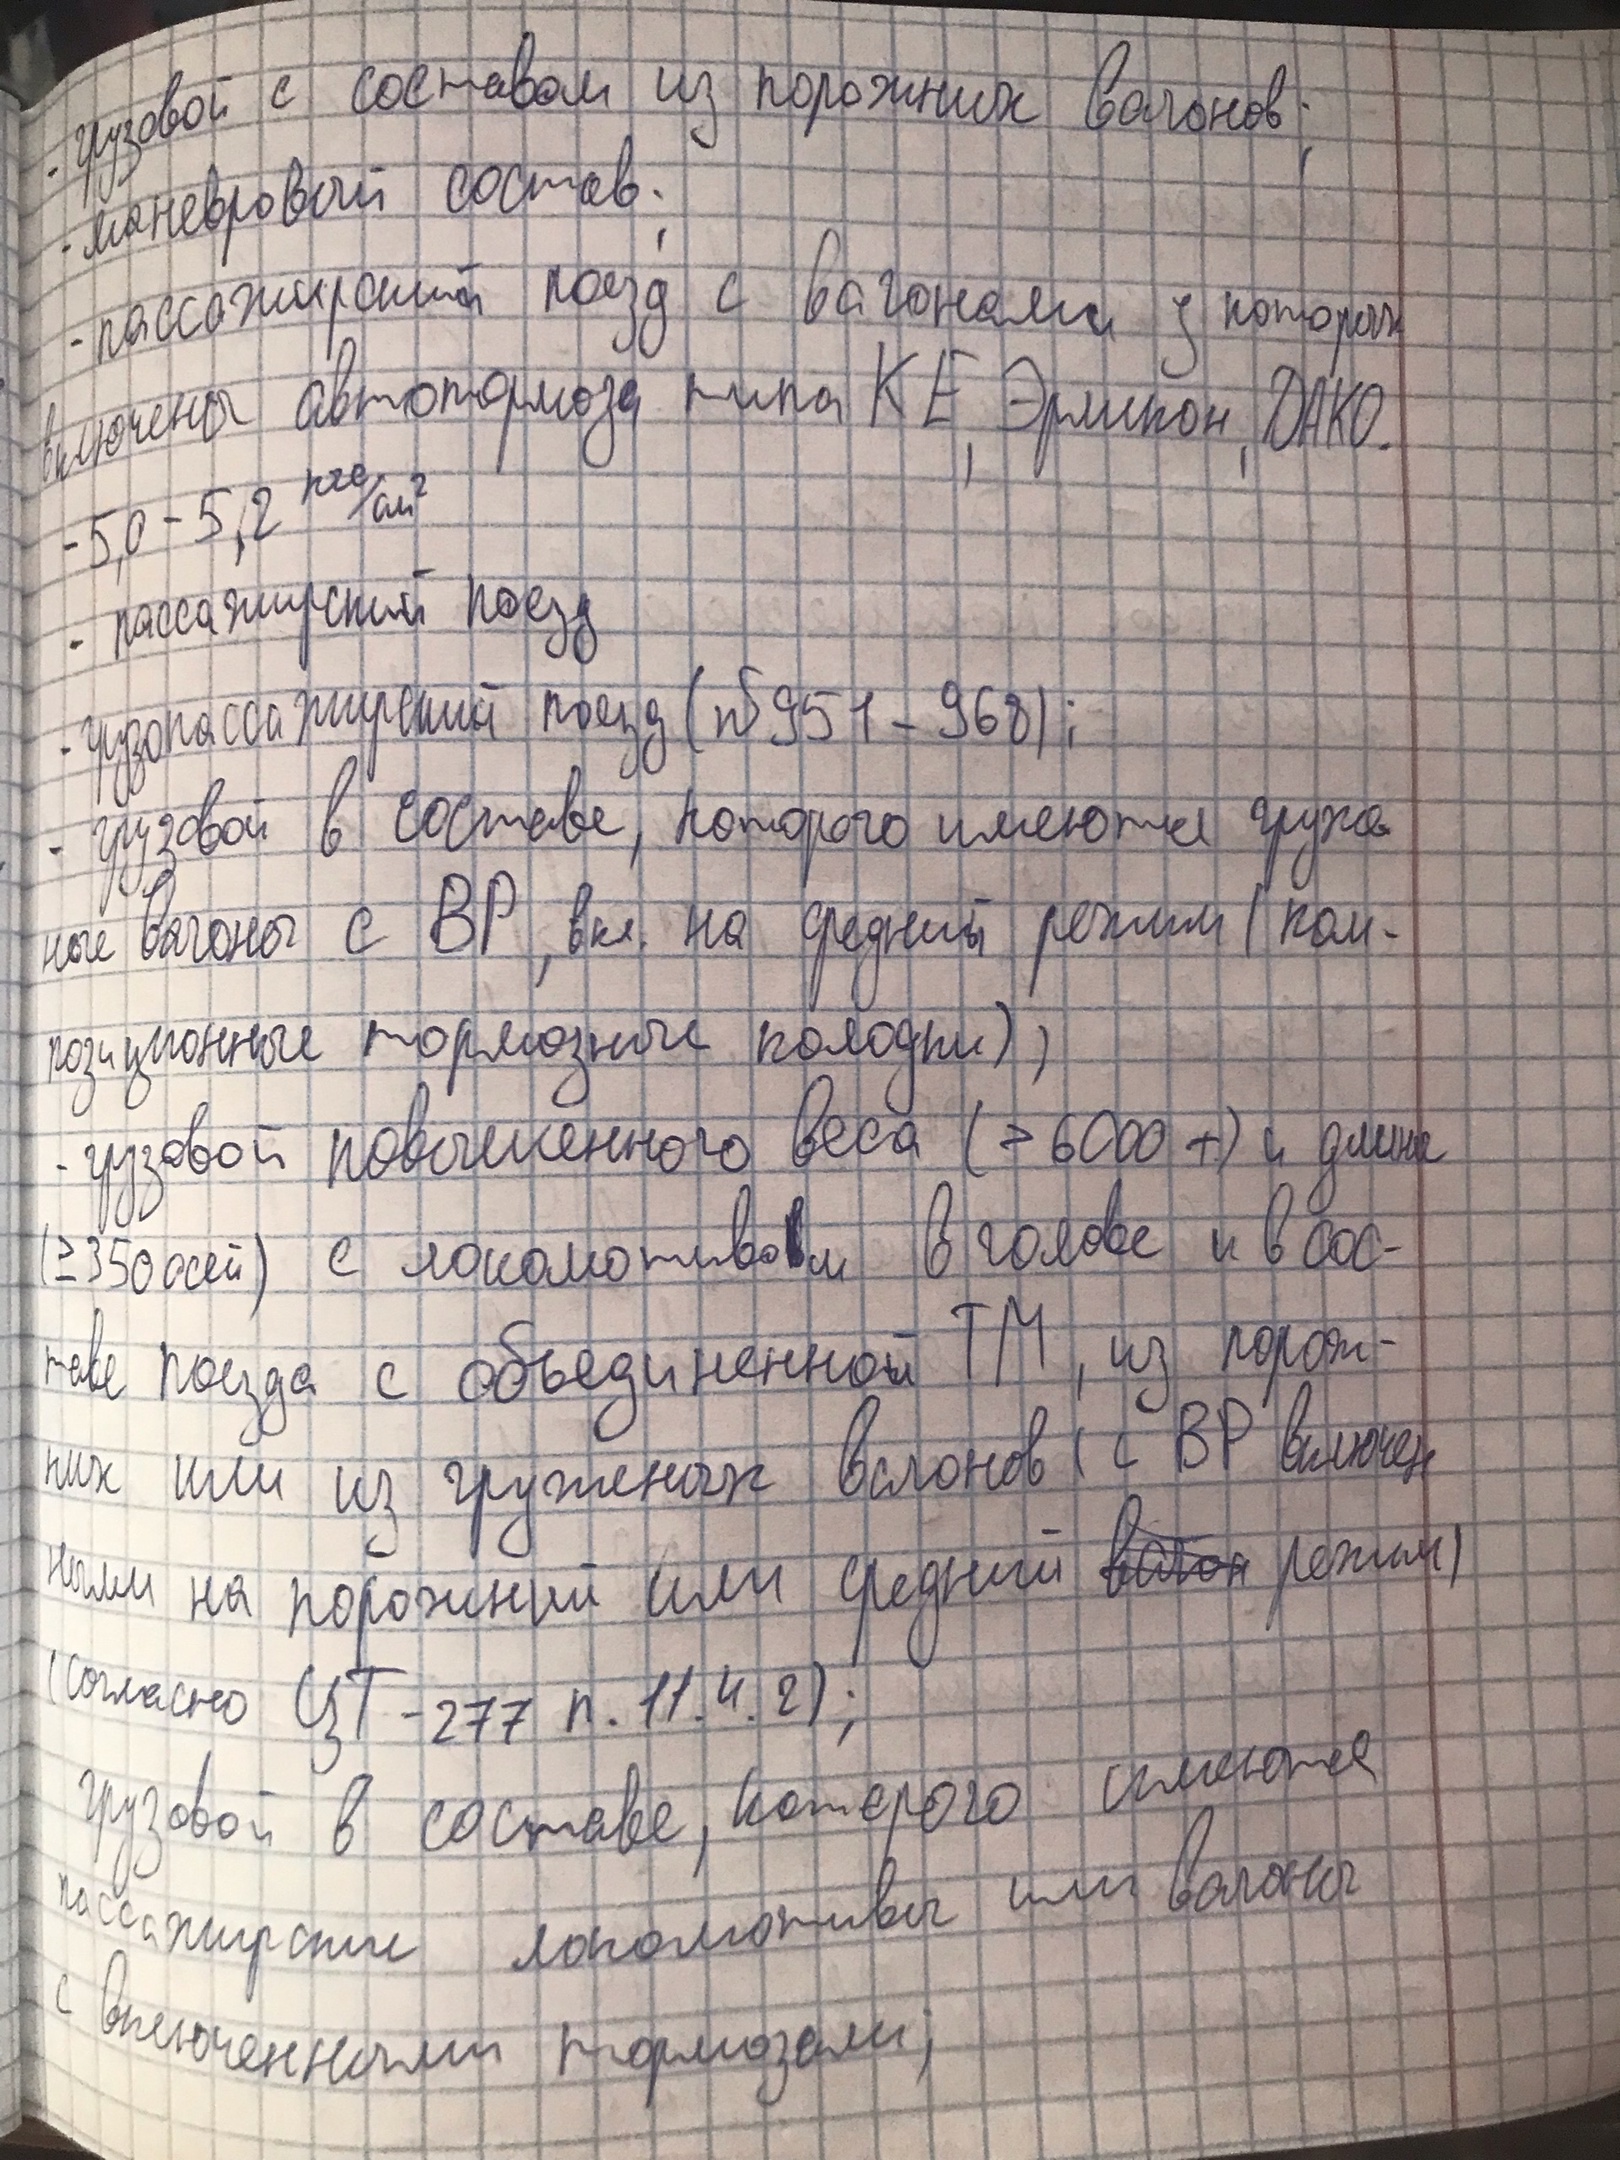 - грузовой с составом из порожних вагонов;
- маневровый состав;
- пассажирский поезд с вагонами у которых
включены автотормоза типа КЕ, Эрликон, ДАКО.
- 5,0 - 5,2 кгс/см²
- пассажирский поезд
- грузопассажирский поезд (№951 - 968);
- грузовой в составе, которого имеются груже
ные вагоны с ВР, вкл. на средний режим (ком-
позиционные тормозные колодки);
- грузовой повышенного веса (≥ 6000 т) и длины
(≥350 осей) с локомотивом в голове и в сос-
таве поезда с объединенной ТМ, из порож-
них или из груженых вагонов (с ВР включен
ными на порожний или средний вагон режим)
(согласно ЦТ - 277 п. 11.4.2);
грузовой в составе, которого имеются
пассажирские локомотивы или вагоны
с включенными тормозами;